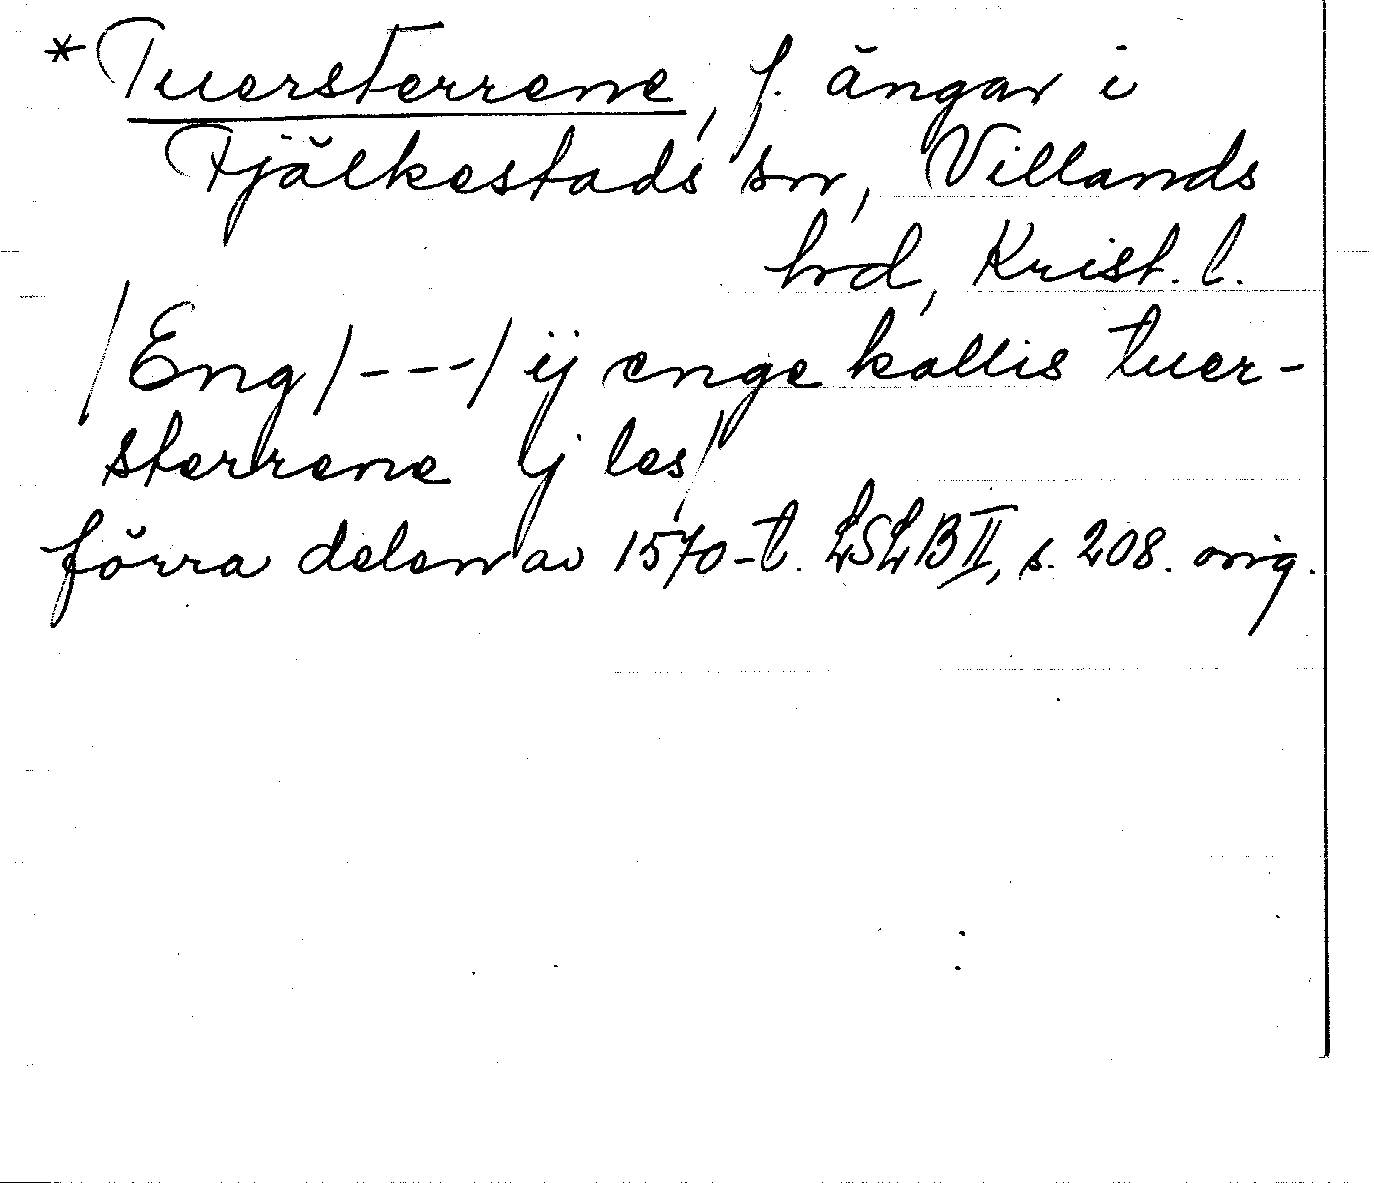 *Tuersterrene, f. ängar i
Fjälkestads sn, Villands
hd, Krist. l.
/Eng/---/ ij enge kallis tuer-
sterrene ij les/
förra delen av 1570-t. LSLB II, s. 208. orig.